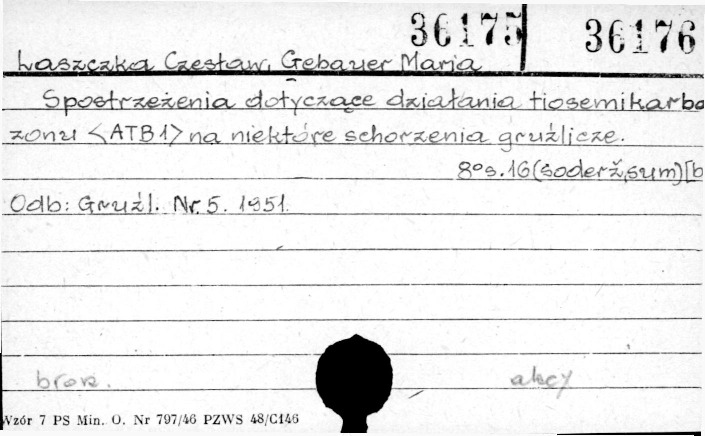 36175 36176
Łaszczka Czesław, Gebauer Maria
Spostrzeżenia dotyczące działania tiosemikarba
zonu <ATB1> na niektóre schorzenia gruźlicze.
8° s.16 (soderž, sum) [b
Odb: Gruźl. Nr. 5. 1951.
brosz. akcy
Wzór 7 PS Min. O. Nr 797/46 PZWS 48/C146